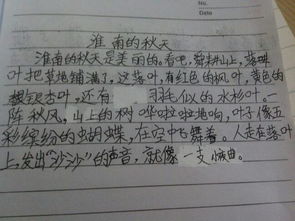 No.
Date
淮南的秋天
淮南的秋天是美丽的。看吧,舜耕山上,落
叶把草地铺满了,这落叶,有红色的枫叶,黄色的
银杏叶,还有 羽毛似的水杉叶。一
阵秋风,山上的树哗啦啦地响,叶子像五
彩缤纷的蝴蝶,在空中飞舞着。人走在落叶
上发出“沙沙”的声音,就像一支曲。